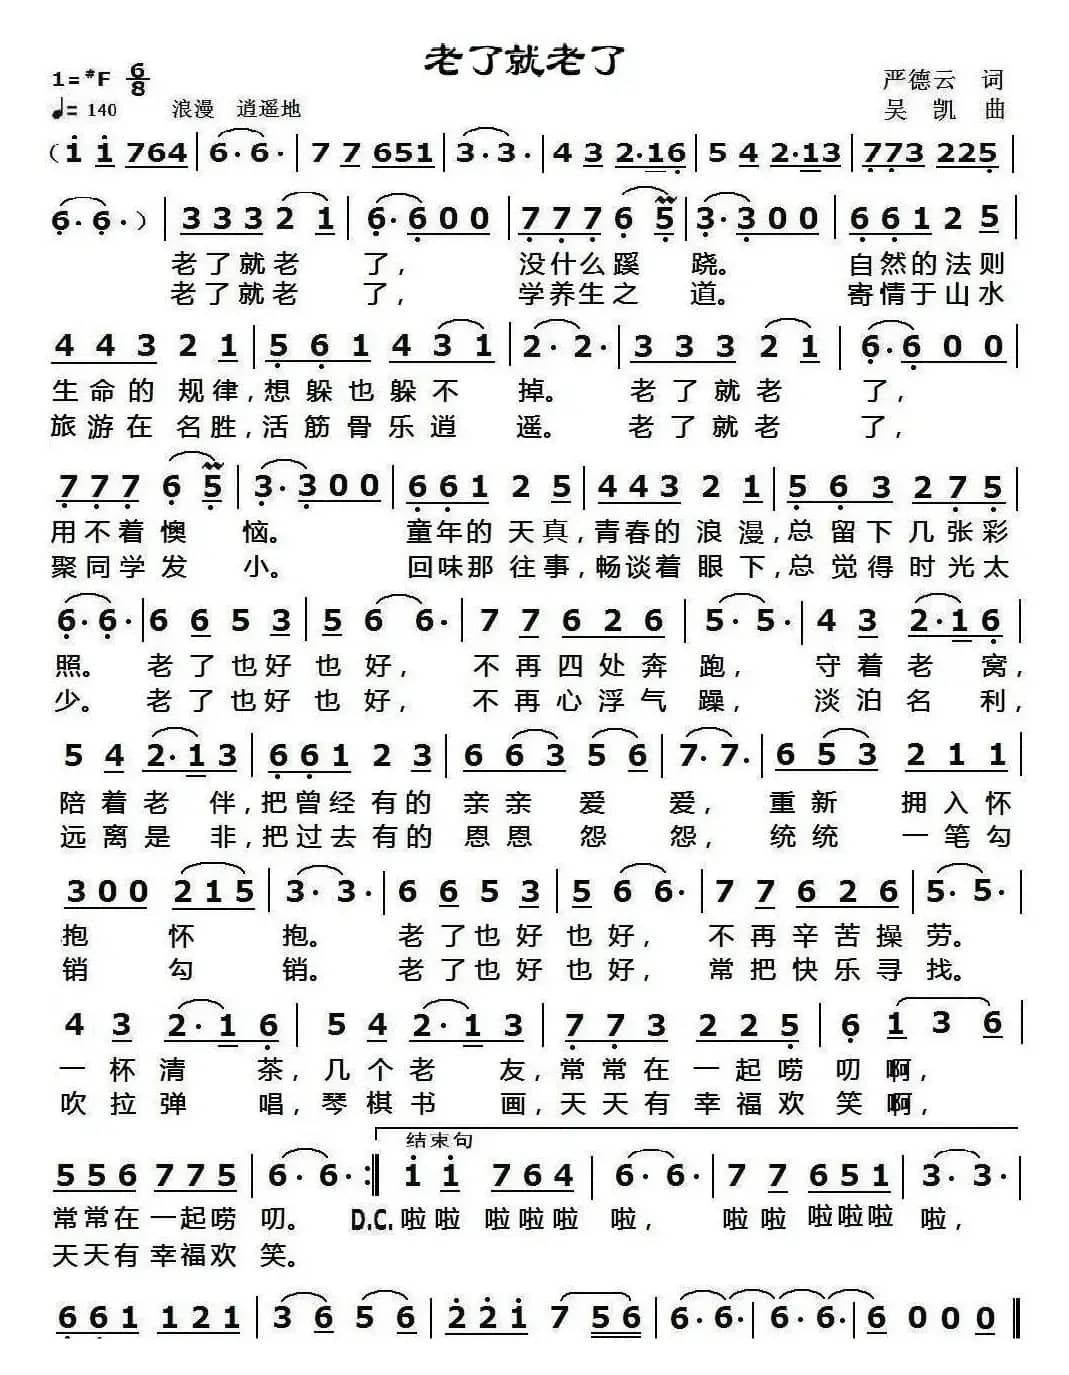 老了就老了
1=#F 6/8
严德云 词
♩= 140 浪漫 逍遥地
吴 凯 曲
(i i 764 | 6· 6· | 7 7 651 | 3· 3· | 4 3 2·16 | 5 4 2·13 | 773 225 |
6· 6· ) | 333 2 1 | 6· 600 | 777 6 5 | 3· 300 | 661 2 5 |
老了就老 了, 没什么蹊 跷。 自然的法则
老了就老 了, 学养生之 道。 寄情于山水
443 2 1 | 561 431 | 2· 2· | 333 2 1 | 6· 600 |
生命的 规律, 想躲也躲不 掉。 老了就老 了,
旅游在 名胜, 活筋骨乐逍 遥。 老了就老 了,
777 6 5 | 3· 300 | 661 2 5 | 443 2 1 | 563 275 |
用不着懊 恼。 童年的 天真, 青春的 浪漫, 总留下几张彩
聚同学发 小。 回味那 往事, 畅谈着 眼下, 总觉得时光太
6· 6· | 6 6 5 3 | 5 6 6· | 7 7 626 | 5· 5· | 4 3 2·16 |
照。 老了也好也好, 不再四处奔 跑, 守着老 窝,
少。 老了也好也好, 不再心浮气 躁, 淡泊名 利,
5 4 2·13 | 661 2 3 | 663 5 6 | 7· 7· | 653 211 |
陪着老 伴, 把曾经有的 亲亲 爱 爱, 重新 拥入怀
远离是 非, 把过去有的 恩恩 怨 怨, 统统 一笔勾
300 215 | 3· 3· | 6 6 5 3 | 5 6 6· | 7 7 626 | 5· 5· |
抱 怀 抱。 老了也好也好, 不再辛苦操 劳。
销 勾 销。 老了也好也好, 常把快乐寻 找。
4 3 2·16 | 5 4 2·13 | 773 225 | 6 1 3 6 |
一杯清 茶, 几个老 友, 常常在一起唠 叨啊,
吹拉弹 唱, 琴棋书 画, 天天有幸福欢 笑啊,
结束句
556 775 | 6· 6· :‖ i i 764 | 6· 6· | 7 7 651 | 3· 3· |
常常在一起唠 叨。 D.C. 啦啦 啦啦啦 啦, 啦啦 啦啦啦 啦,
天天有幸福欢 笑。
661 121 | 3 6 5 6 | 22i 7 56 | 6· 6· | 6· 6· | 6 0 0 0 ‖